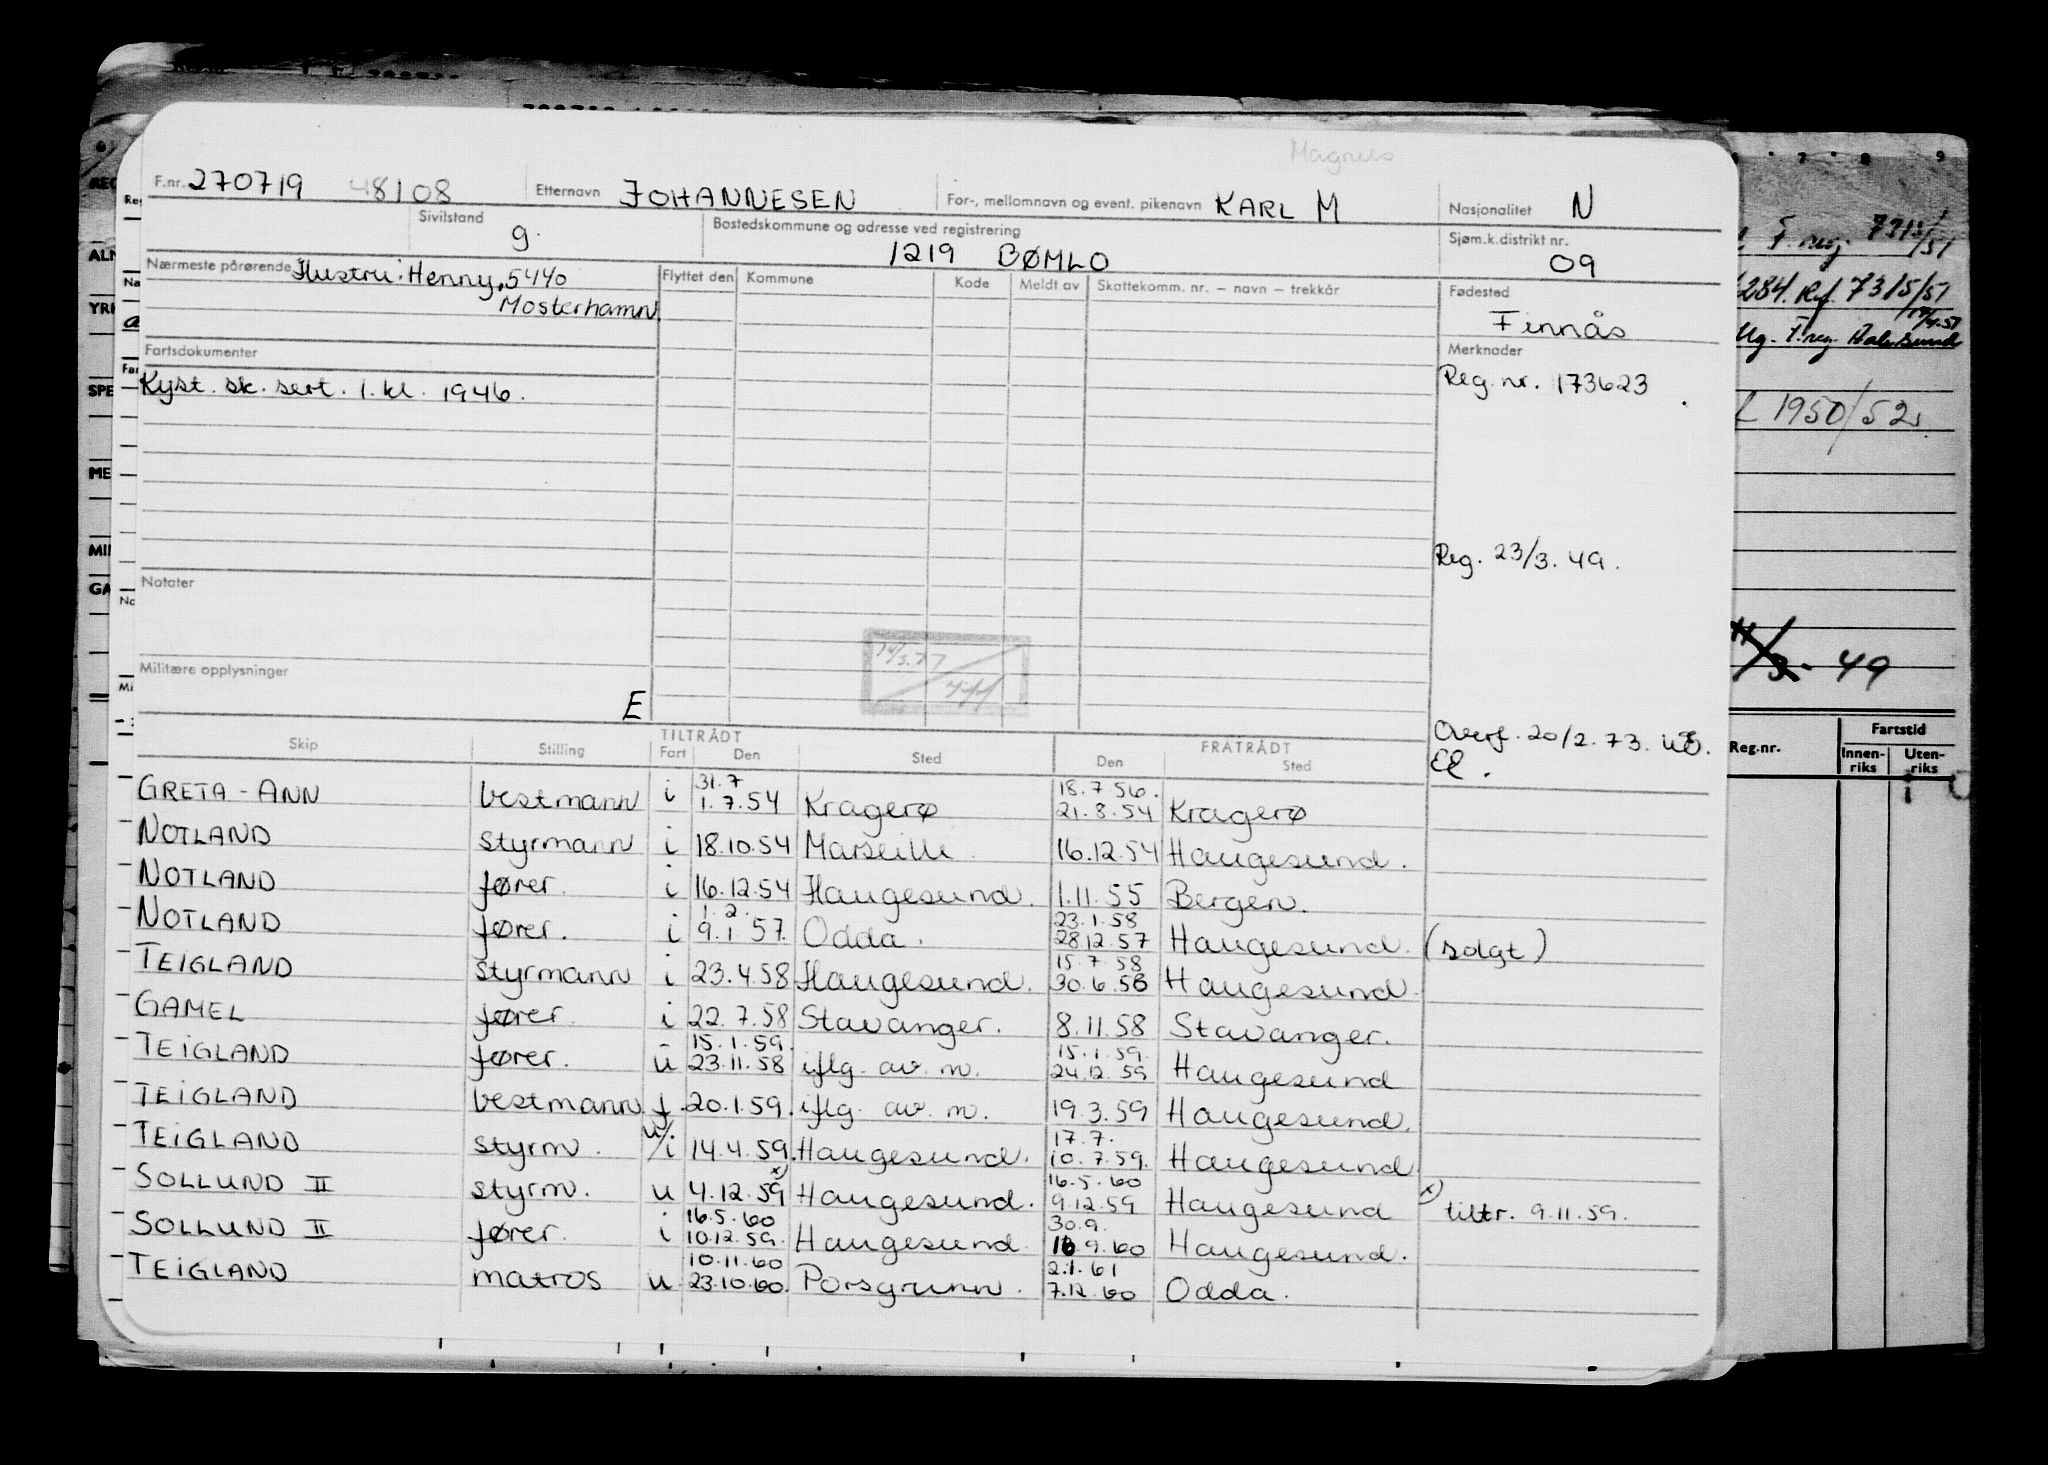 Magnus
F.nr. 270719 48108 Etternavn JOHANNESEN For-, mellomnavn og event. pikenavn KARL M Nasjonalitet N
Sivilstand g. Bostedskommune og adresse ved registrering 1219 BØMLO Sjøm.k.distrikt nr. 09
Nærmeste pårørende Hustru: Henny, 5440 Flyttet den Kommune Kode Meldt av Skattekomm. nr. – navn – trekkår Fødested
Mosterhamn Finnås
Fartsdokumenter Merknader
Kyst. sk. sert. 1. kl. 1946. Reg. nr. 173623
Reg. 23/3. 49.
Notater
Militære opplysninger
E
Overf. 20/2. 73.
El.
Skip Stilling TILTRÅDT Fart Den Sted FRATRÅDT Den Sted
31.7 18.7.56.
GRETA - ANN bestmann i 1.7.54 Kragerø 21.8.54 Kragerø
NOTLAND styrmann i 18.10.54 Marseille 16.12.54 Haugesund.
NOTLAND fører. i 16.12.54 Haugesund. 1.11.55 Bergen.
1. 2. 23.1.58
NOTLAND fører. i 9.1.57. Odda. 28.12.57 Haugesund. (solgt)
15.7.58
TEIGLAND styrmann i 23.4.58 Haugesund. 30.6.58 Haugesund.
GAMEL fører. i 22.7.58 Stavanger. 8.11.58 Stavanger.
15.1.59. 15.1.59.
TEIGLAND fører. u 23.11.58 iflg. av. m. 24.12.59 Haugesund
TEIGLAND bestmann f. 20.1.59. iflg. av. m. 19.3.59 Haugesund.
17.7.
TEIGLAND styrm. u/i 14.4.59. Haugesund. 10.7.59. Haugesund
16.5.60
SOLLUND II styrm. u 4.12.59 x) Haugesund. 9.12.59 Haugesund x) tiltr. 9.11.59.
16.5.60 30.9.
SOLLUND II fører. i 10.12.59. Haugesund 16.9.60 Haugesund.
10.11.60 2.1.61
TEIGLAND matros u. 23.10.60. Porsgrunn. 7.12.60 Odda.
L 1950/52
49
Reg.nr. Fartstid
Innen-riks Uten-riks